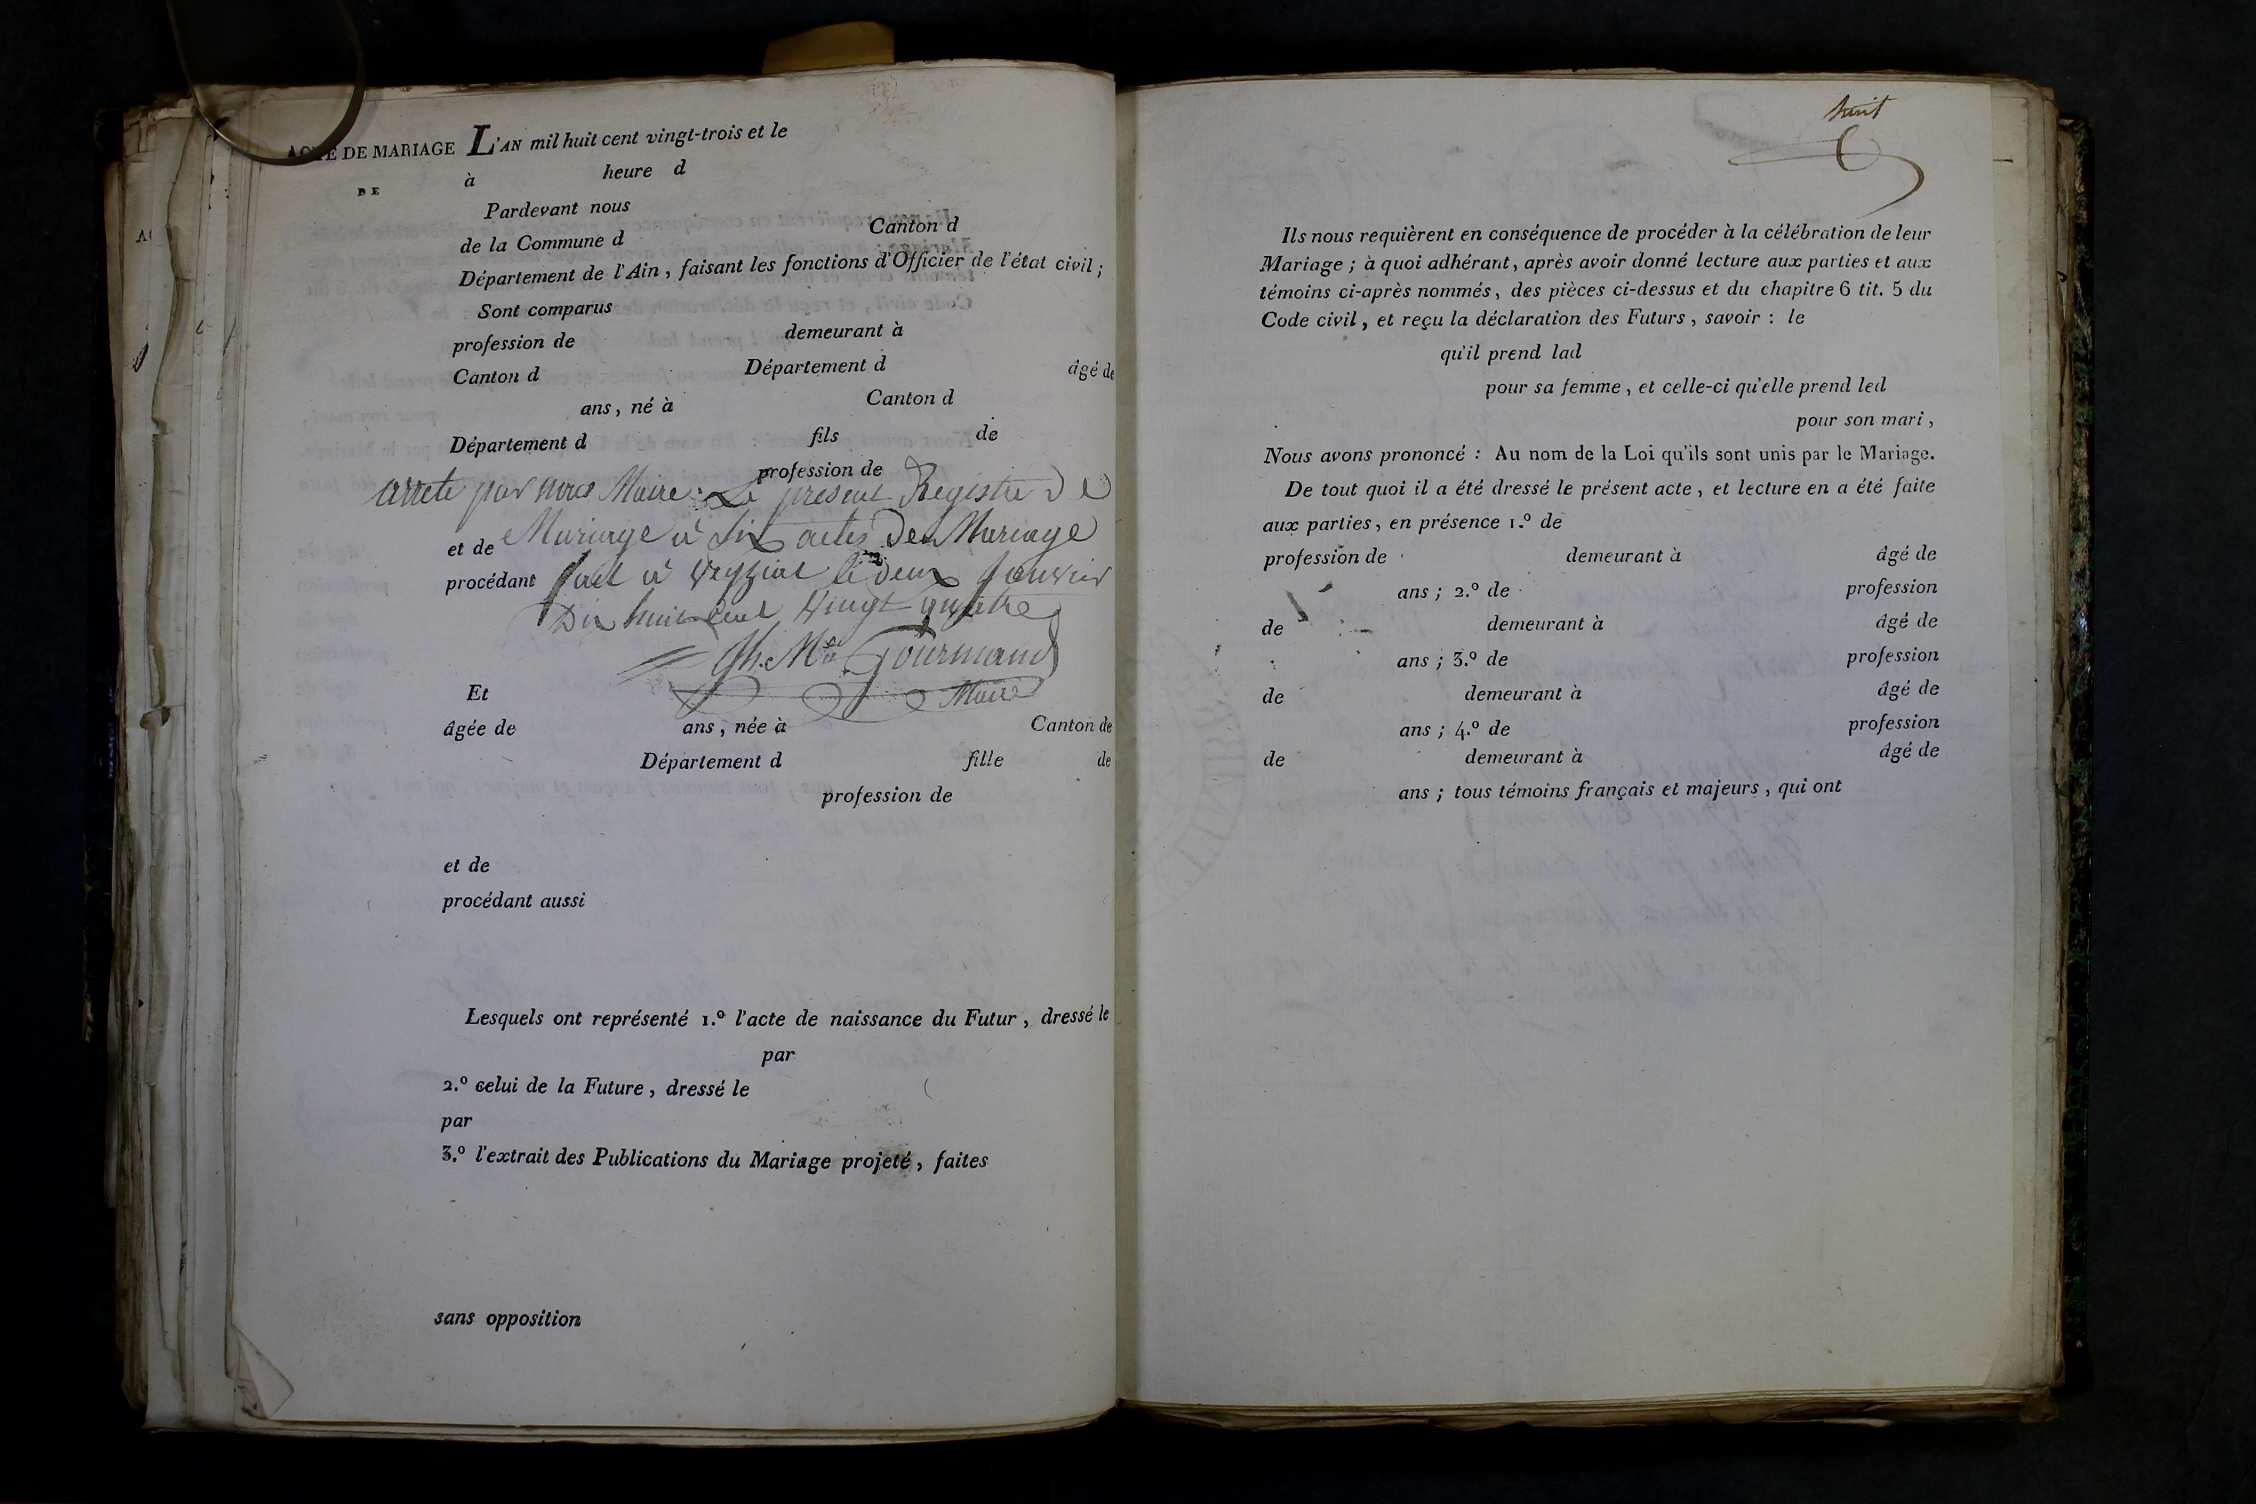 ACTE DE MARIAGE L'AN mil huit cent vingt-trois et le
DE à heure d
Pardevant nous
de la Commune d Canton d
Département de l'Ain, faisant les fonctions d'Officier de l'état civil;
Sont comparus
profession de demeurant à
Canton d Département d âgé de
ans, né à Canton d
Département d fils de
profession de
arrete par nous Maire Le present Registre de
et de Mariage à Six actes De Mariage
procédant fait à Veyziat le deux Janvier
Dix huit cent Vingt quatre
Gourmand
Maire
Et
âgée de ans, née à Canton de
Département d fille de
profession de
et de
procédant aussi
Lesquels ont représenté 1.º l'acte de naissance du Futur, dressé le
par
2.º celui de la Future, dressé le
par
3.º l'extrait des Publications du Mariage projeté, faites
sans opposition
huit
Ils nous requièrent en conséquence de procéder à la célébration de leur
Mariage; à quoi adhérant, après avoir donné lecture aux parties et aux
témoins ci-après nommés, des pièces ci-dessus et du chapitre 6 tit. 5 du
Code civil, et reçu la déclaration des Futurs, savoir : le
qu'il prend lad
pour sa femme, et celle-ci qu'elle prend led
pour son mari,
Nous avons prononcé : Au nom de la Loi qu'ils sont unis par le Mariage.
De tout quoi il a été dressé le présent acte, et lecture en a été faite
aux parties, en présence 1.º de
profession de demeurant à âgé de
ans; 2.º de profession
de demeurant à âgé de
ans; 3.º de profession
de demeurant à âgé de
ans; 4.º de profession
de demeurant à âgé de
ans; tous témoins français et majeurs, qui ont